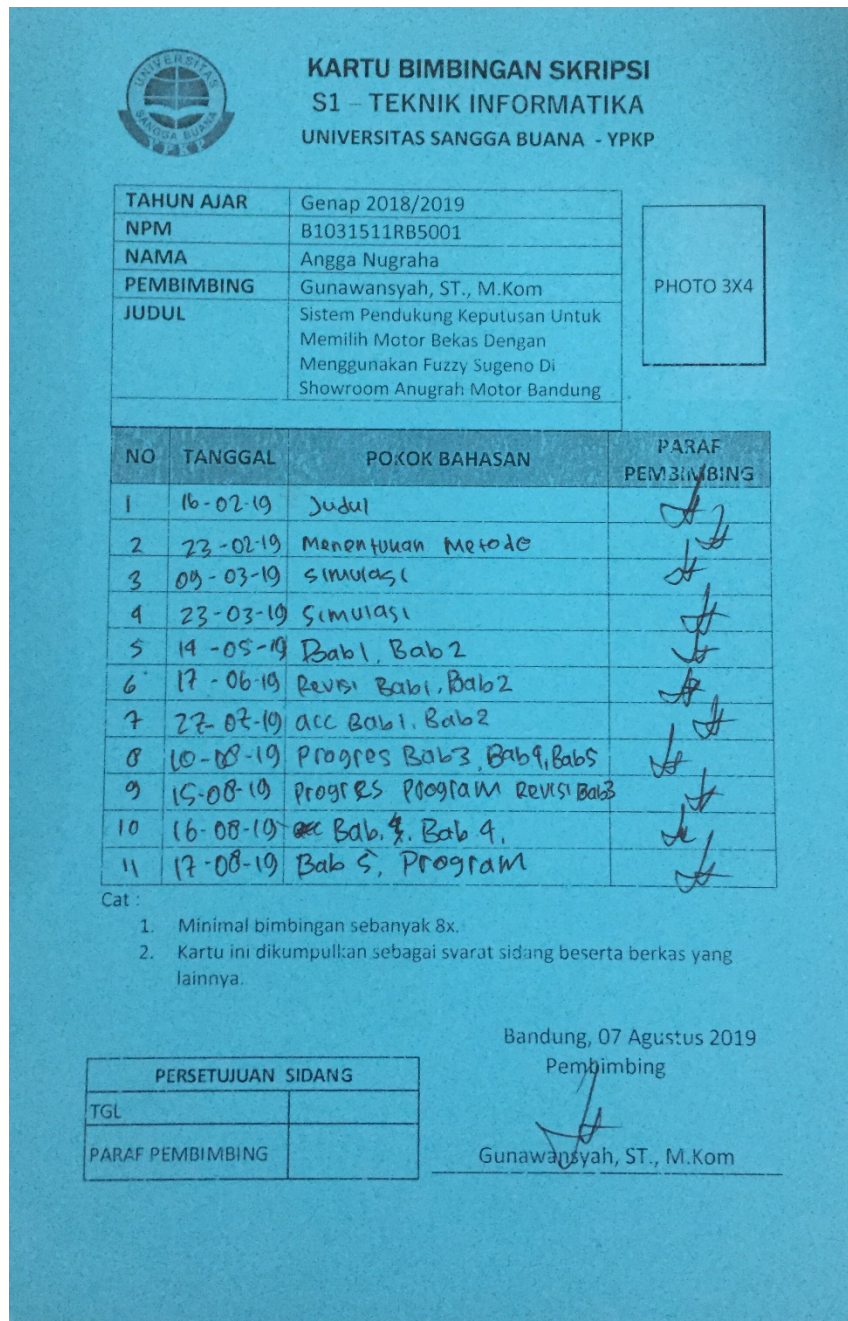 UNIVERSITAS
SANGGA BUANA
YPKP
KARTU BIMBINGAN SKRIPSI
S1 – TEKNIK INFORMATIKA
UNIVERSITAS SANGGA BUANA - YPKP
TAHUN AJAR Genap 2018/2019
NPM B1031511RB5001
NAMA Angga Nugraha
PEMBIMBING Gunawansyah, ST., M.Kom
JUDUL Sistem Pendukung Keputusan Untuk
Memilih Motor Bekas Dengan
Menggunakan Fuzzy Sugeno Di
Showroom Anugrah Motor Bandung
PHOTO 3X4
NO TANGGAL POKOK BAHASAN PARAF PEMBIMBING
1 16-02-19 Judul
2 23-02-19 Menentukan Metode
3 09-03-19 Simulasi
4 23-03-19 Simulasi
5 14-05-19 Bab1, Bab2
6 17-06-19 Revisi Bab1, Bab2
7 27-07-19 acc Bab1, Bab2
8 10-08-19 Progres Bab3, Bab4, Bab5
9 15-08-19 Progres Program Revisi Bab3
10 16-08-19 acc Bab. Bab 4.
11 17-08-19 Bab 5, Program
Cat :
1. Minimal bimbingan sebanyak 8x.
2. Kartu ini dikumpulkan sebagai syarat sidang beserta berkas yang
lainnya.
Bandung, 07 Agustus 2019
Pembimbing
PERSETUJUAN SIDANG
TGL
PARAF PEMBIMBING
Gunawansyah, ST., M.Kom